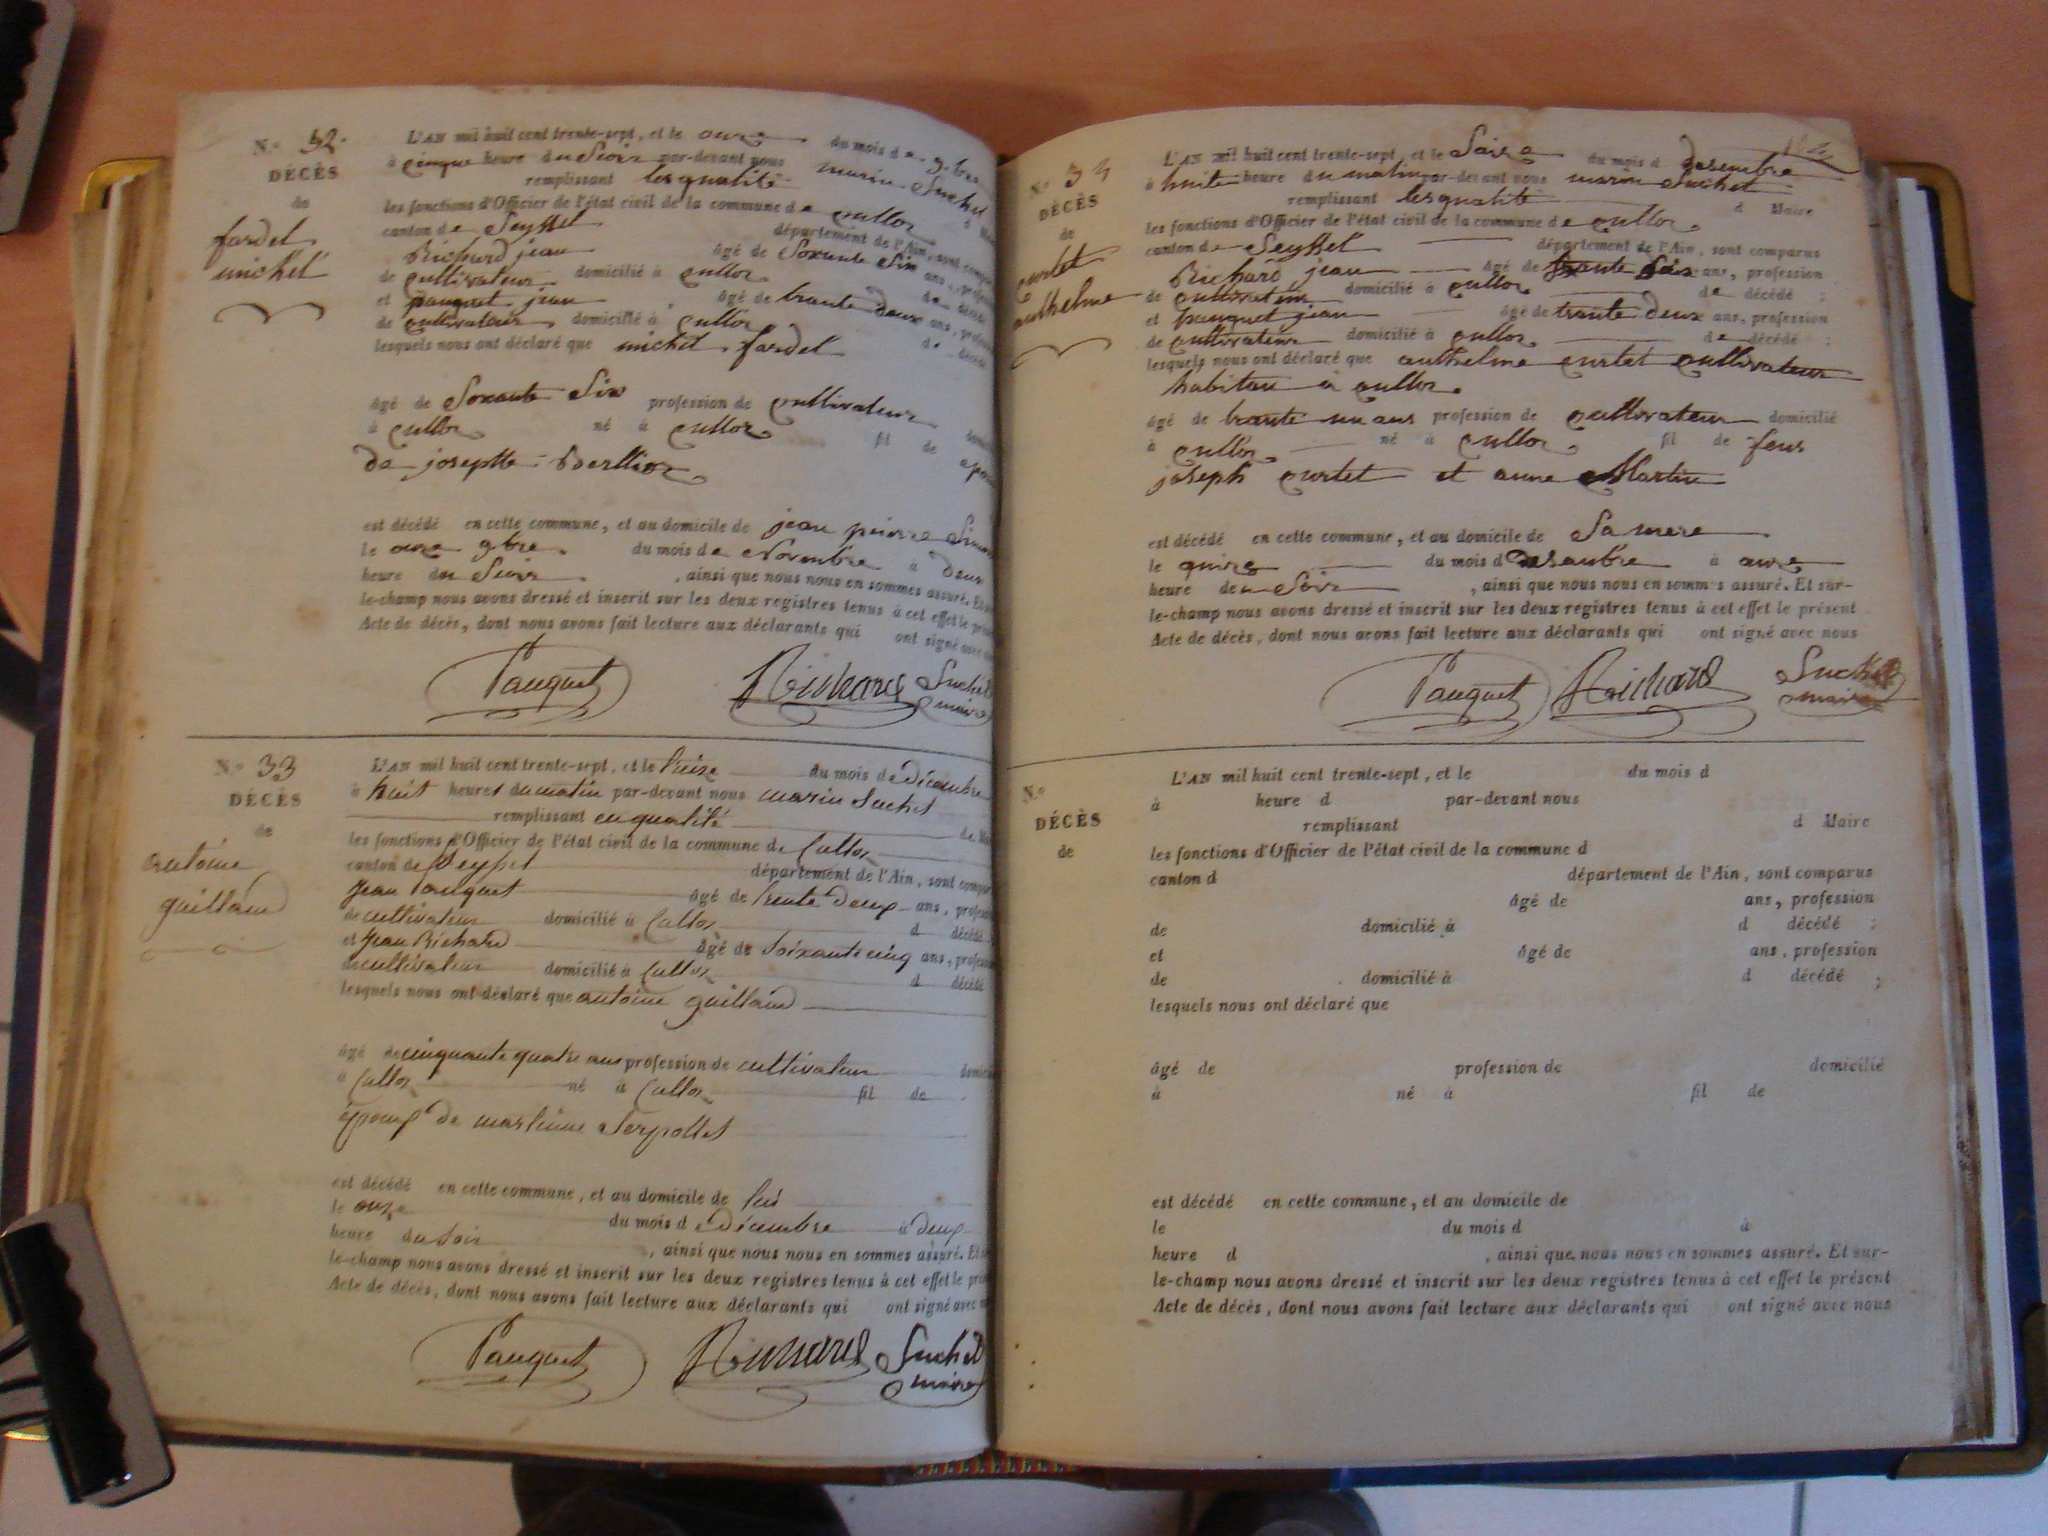 N.º 32.
DÉCÈS
de
fardel
michel
L'AN mil huit cent trente-sept, et le onze du mois de 9.bre
à cinque heure du Soir par-devant nous marin Suchet
remplissant les qualité
les fonctions d'Officier de l'état civil de la commune de culloz
canton de Seyssel département de l'Ain, sont
Richard jean âgé de Soxante Six ans,
de cultivateur domicilié à culloz
et pauquet jean âgé de trante deux ans,
de cultivateur domicilié à culloz de décédé
lesquels nous ont déclaré que michel fardel
âgé de Soxante Six profession de cultivateur
à culloz né à culloz fil de
de josephte Berllioz
est décédé en cette commune, et au domicile de jean peirre
le onze 9bre du mois de Novembre à deux
heure du Soir , ainsi que nous nous en sommes assuré. Et
le-champ nous avons dressé et inscrit sur les deux registres tenus à cet effet le
Acte de décès, dont nous avons fait lecture aux déclarants qui ont signé avec
Pauquet Richard Suchet
maire
N.º 33
DÉCÈS
de
antoine
guilland
L'AN mil huit cent trente-sept, et le treize du mois de Décembre
à huit heures du matin par-devant nous marin Suchet
remplissant en qualité de
les fonctions d'Officier de l'état civil de la commune de Culloz
canton de Seyssel département de l'Ain, sont
Jean Pauquet âgé de trente deux ans,
de cultivateur domicilié à Culloz d décédé
et Jean Richard âgé de soixante cinq ans,
de cultivateur domicilié à Culloz d décédé
lesquels nous ont déclaré que antoine guilland
âgé de cinquante quatre ans profession de cultivateur
à Culloz né à Culloz fil de
époux de marhine Serpollet
est décédé en cette commune, et au domicile de lui
le onze du mois de décembre à deux
heure du soir , ainsi que nous nous en sommes assuré. Et
le-champ nous avons dressé et inscrit sur les deux registres tenus à cet effet le
Acte de décès, dont nous avons fait lecture aux déclarants qui ont signé avec
Pauquet Richard Suchet
maire
N.º 34
DÉCÈS
de
curtet
anthelme
L'AN mil huit cent trente-sept, et le Saize du mois d desembre
à huite heure du matin par-devant nous marin Suchet
remplissant les qualité d Maire
les fonctions d'Officier de l'état civil de la commune de culloz
canton de Seyssel département de l'Ain, sont comparus
Richard jean âgé de ans, profession
de cultivateur domicilié à culloz de décédé ;
et pauquet jean âgé de trante deux ans, profession
de cultivateur domicilié à culloz de décédé ;
lesquels nous ont déclaré que anthelme curtet cultivateur
habitan à culloz
âgé de trante un ans profession de cultivateur domicilié
à culloz né à culloz fil de feus
joseph curtet et anne Martin
est décédé en cette commune, et au domicile de Sa mere
le quinze du mois d desanbre à onze
heure de Soir , ainsi que nous nous en sommes assuré. Et sur-
le-champ nous avons dressé et inscrit sur les deux registres tenus à cet effet le présent
Acte de décès, dont nous avons fait lecture aux déclarants qui ont signé avec nous
Pauquet Richard Suchet
maire
N.º
DÉCÈS
de
L'AN mil huit cent trente-sept, et le du mois d
à heure d par-devant nous
remplissant d Maire
les fonctions d'Officier de l'état civil de la commune d
canton d département de l'Ain, sont comparus
âgé de ans, profession
de domicilié à d décédé ;
et âgé de ans, profession
de domicilié à d décédé ;
lesquels nous ont déclaré que
âgé de profession de domicilié
à né à fil de
est décédé en cette commune, et au domicile de
le du mois d à
heure d , ainsi que nous nous en sommes assuré. Et sur-
le-champ nous avons dressé et inscrit sur les deux registres tenus à cet effet le présent
Acte de décès, dont nous avons fait lecture aux déclarants qui ont signé avec nous